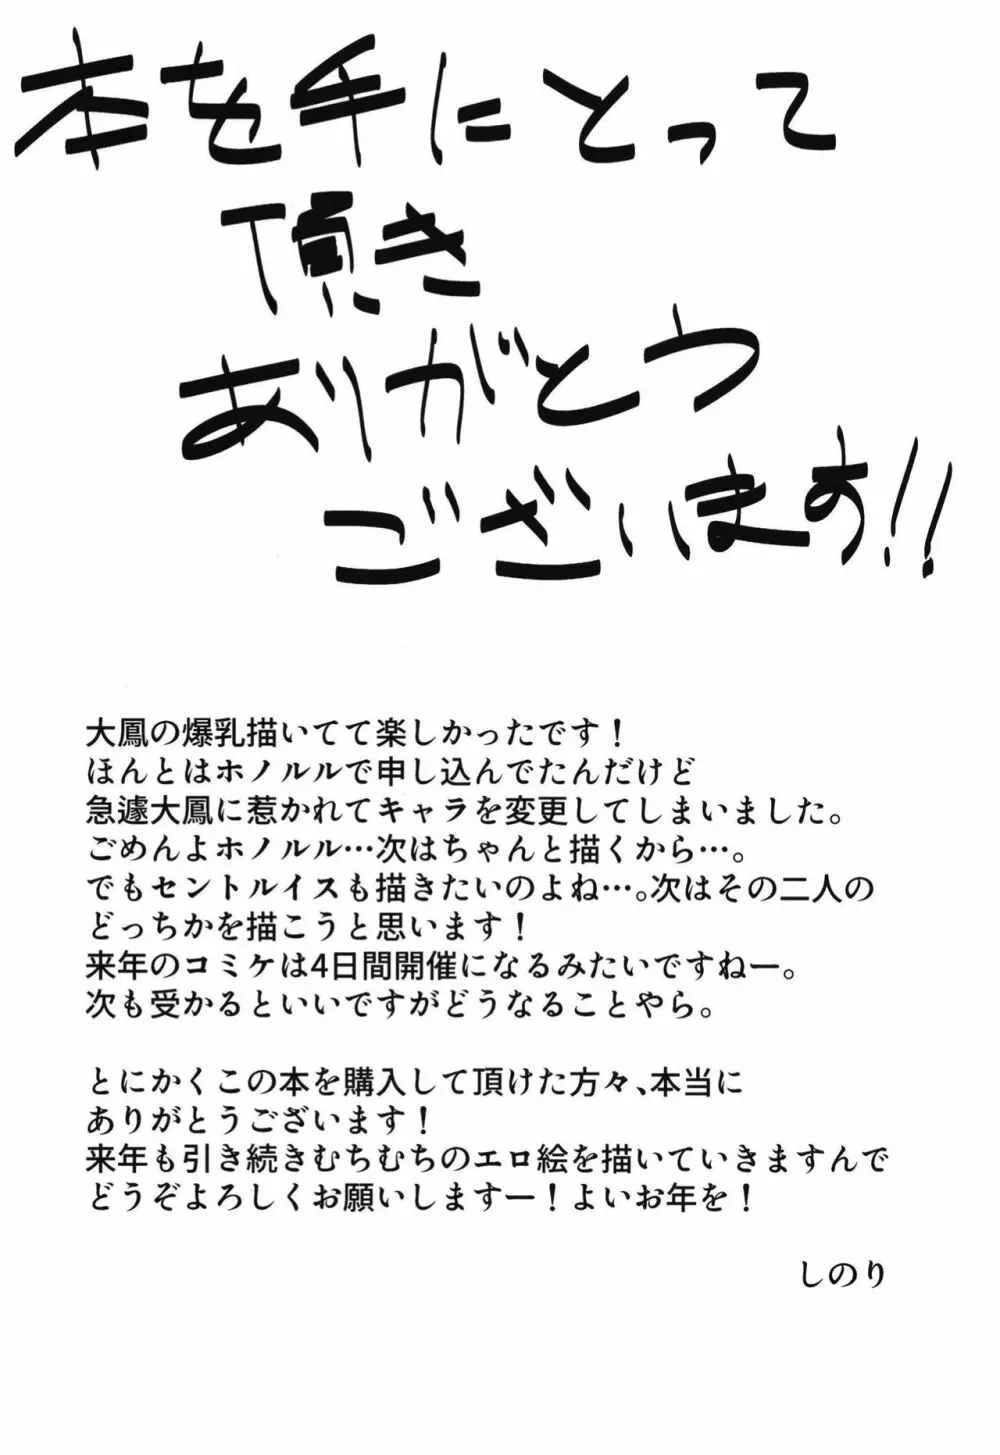 本を手にとって
頂き
ありがとう
ございます!!
大鳳の爆乳描いてて楽しかったです！
ほんとはホノルルで申し込んでたんだけど
急遽大鳳に惹かれてキャラを変更してしまいました。
ごめんよホノルル…次はちゃんと描くから…。
でもセントルイスも描きたいのよね…。次はその二人の
どっちかを描こうと思います！
来年のコミケは4日間開催になるみたいですねー。
次も受かるといいですがどうなることやら。
とにかくこの本を購入して頂けた方々、本当に
ありがとうございます！
来年も引き続きむちむちのエロ絵を描いていきますんで
どうぞよろしくお願いしますー！よいお年を！
しのり